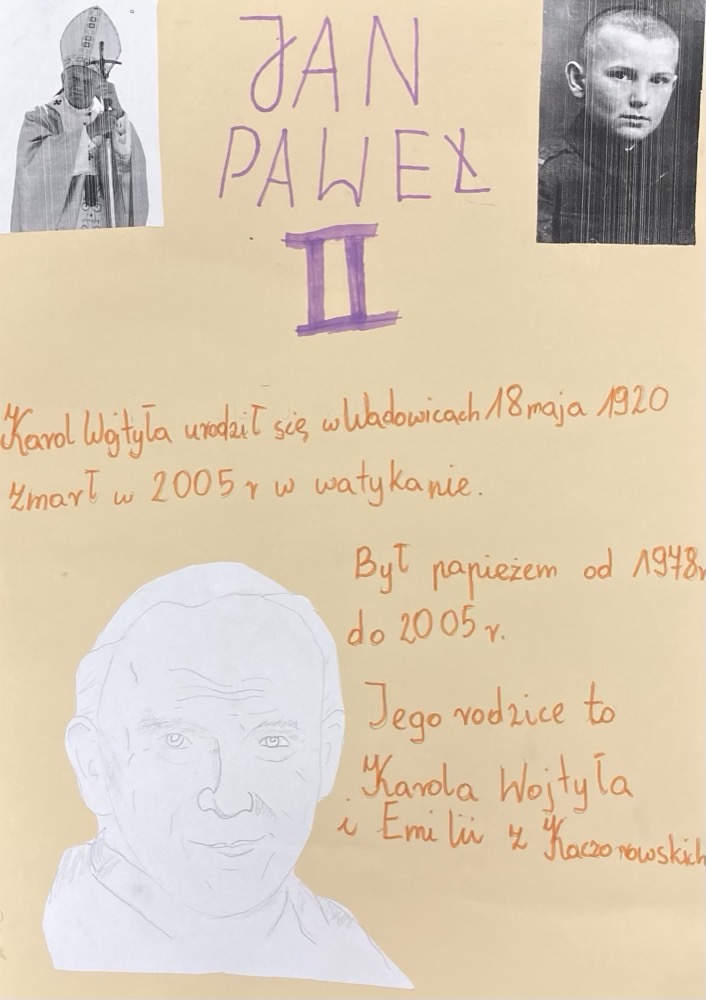 JAN
PAWEŁ
II
Karol Wojtyła urodził się w Wadowicach 18 maja 1920
zmarł w 2005 r w watykanie.
Był papieżem od 1978r
do 2005 r.
Jego rodzice to
Karola Wojtyła
i Emilii z Kaczorowskich